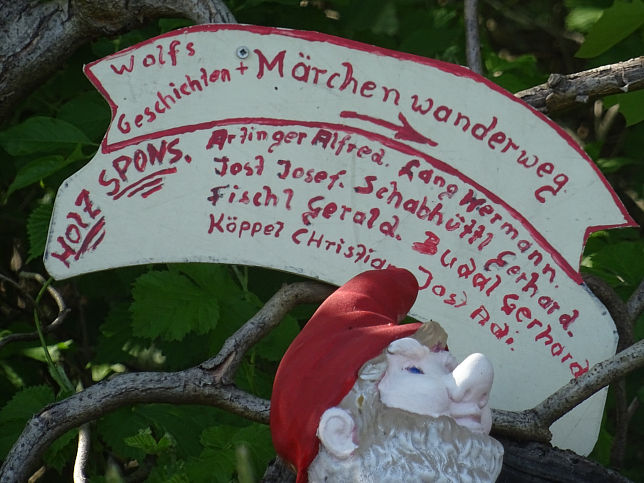 Wolfs
Geschichten + Märchenwanderweg
HOLZ SPONS.
Artinger Alfred. Lang Hermann.
Jost Josef. Schabhüttl Gerhard.
Fischl Gerald. Budal Gerhard
Köppel Christian Jost Adi.